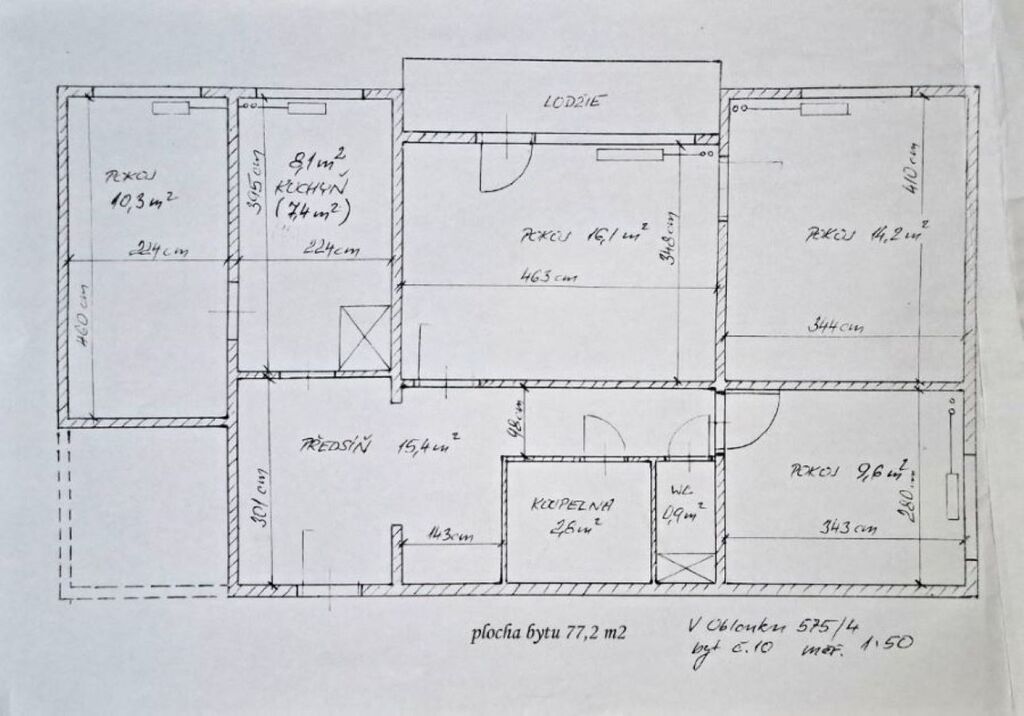 LODŽIE
POKOJ
10,3 m²
224 cm
460 cm
8,1 m²
KUCHYŇ
(7,4 m²)
395 cm
224 cm
POKOJ 16,1 m²
463 cm
348 cm
POKOJ 14,2 m²
410 cm
344 cm
PŘEDSÍŇ 15,4 m²
301 cm
98 cm
143 cm
KOUPELNA
2,6 m²
WC
0,9 m²
POKOJ 9,6 m²
343 cm
280 cm
plocha bytu 77,2 m2
V Oblouku 575/4
byt č.10 měř. 1:50